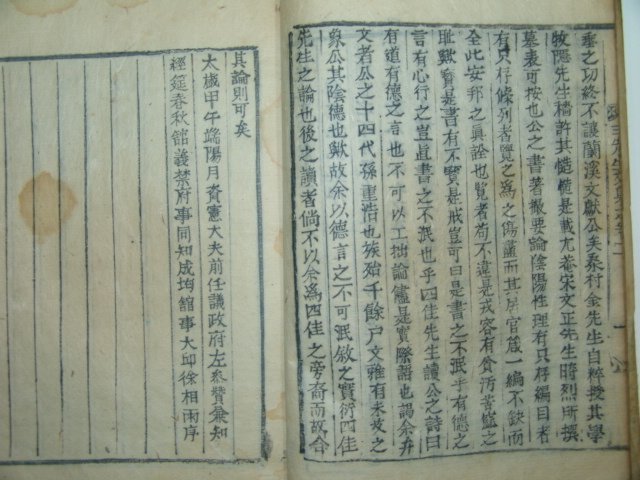 垂之功終不讓蘭溪文獻公矣桑村金先生自粹授其學
牧隱先生穡許其慥慥是載尤菴宋文正先生時烈所撰
墓表可按也公之書著撤要論陰陽性理有只存編目者
有只存條列者覽之爲之傷盡而其居官箴一編不缺而
全此安邦之眞詮也覽者苟不違是戒容有貪汚苦窳之
耻歟寶是書有不寶是戒豈可曰是書之不泯乎有德之
言有心行之豈眞書之不泯也乎四佳先生讀公之詩曰
有道有德之言也不可以工拙論儘是實際語也謁余弁
文者公之十四代孫重浩也族殆千餘戶文雅有未艾之
象公其陰德也歟故余以德言之不可泯敘之實衍四佳
先生之論也後之讀者倘不以余爲四佳之旁裔而故合
其論則可矣
大歲甲午端陽月資憲大夫前任議政府左參贊兼知
經筵春秋館義禁府事同知成均館事大邱徐相雨序